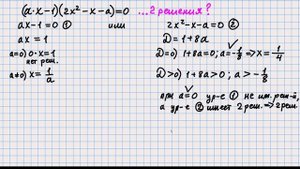 (a·x-1)(2x²-x-a)=0 ...2 решения?
ax-1=0 ① или 2x²-x-a=0 ②
ax=1
a=0) 0·x=1
нет реш.
a≠0) x=1/a
D=1+8a
D=0) 1+8a=0; a=-1/8 ⇒ x=1/4
D>0) 1+8a>0; a>-1/8
при a=0 ур-е ① не им. реш-й,
а ур-е ② имеет 2 реш. ⇒ 2 реш